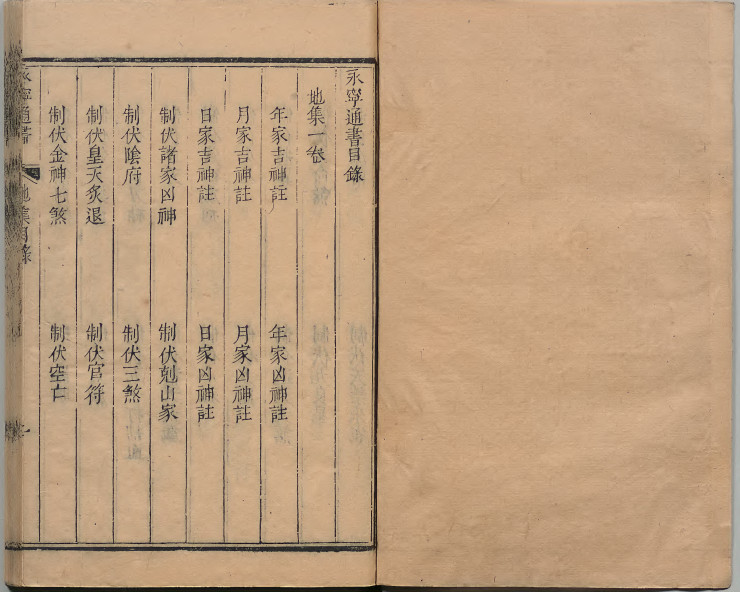 永寧通書目錄
地集一卷
年家吉神註 年家凶神註
月家吉神註 月家凶神註
日家吉神註 日家凶神註
制伏諸家凶神 制伏剋山家
制伏陰府 制伏三煞
制伏皇天炙退 制伏官符
制伏金神七煞 制伏空亡
永寧通書 地集目錄 一